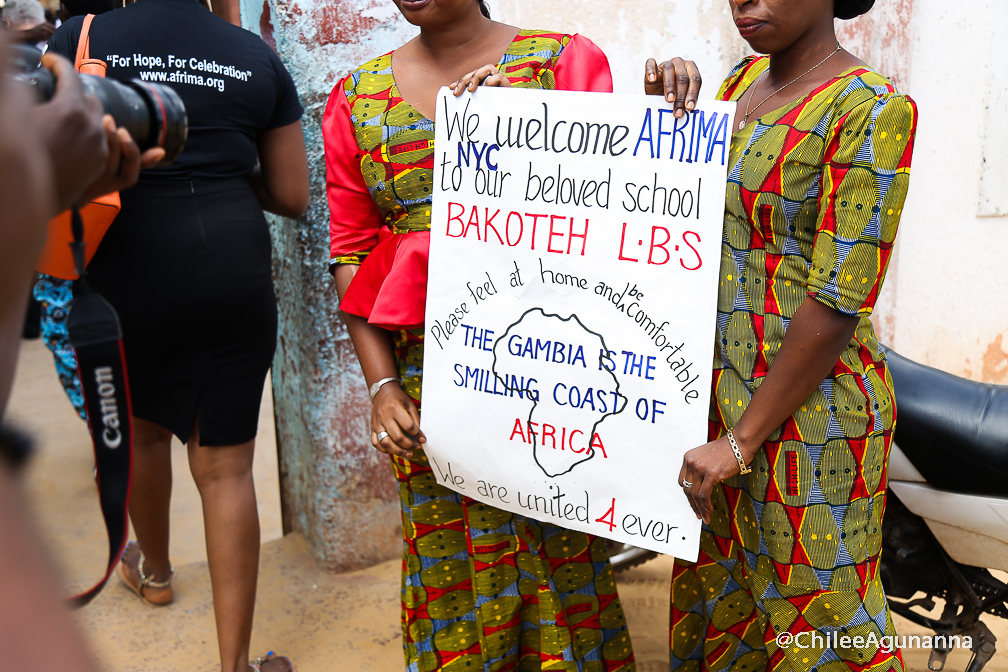 "For Hope, For Celebration"
www.afrima.org
Canon
We welcome AFRIMA
NYC
to our beloved school
BAKOTEH L.B.S
Please feel at home and be Comfortable
THE GAMBIA IS THE
SMILLING COAST OF
AFRICA
We are united 4 ever.
@ChileeAgunanna